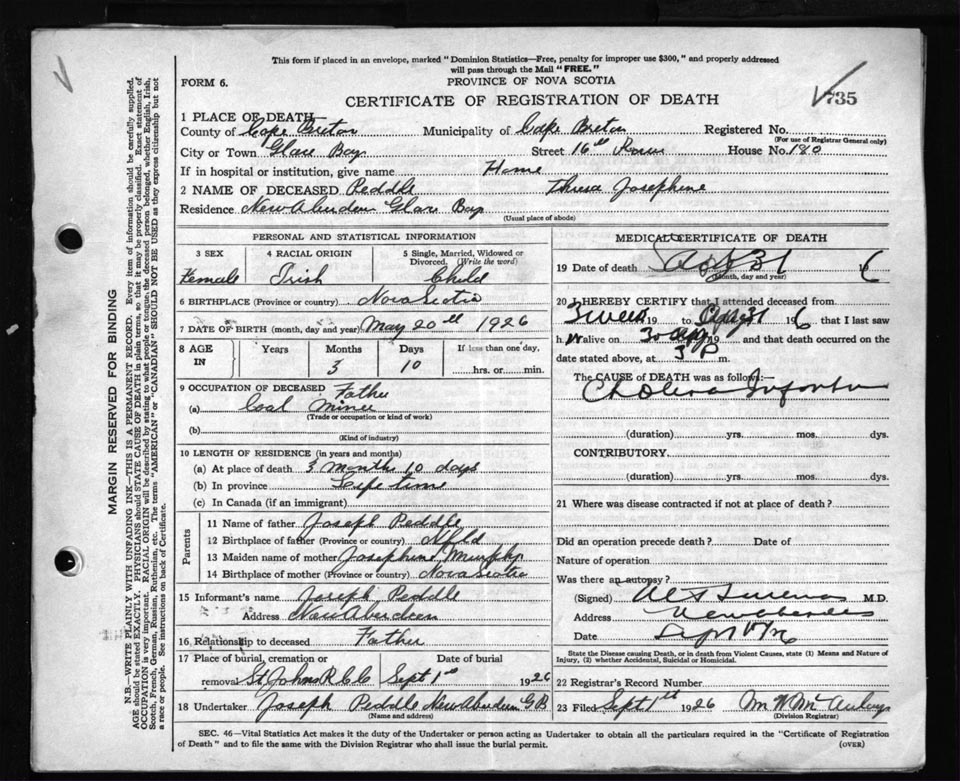 This form if placed in an envelope, marked "Dominion Statistics—Free, penalty for improper use $300," and properly addressed
will pass through the Mail "FREE."
FORM 6.
PROVINCE OF NOVA SCOTIA
CERTIFICATE OF REGISTRATION OF DEATH
735
1 PLACE OF DEATH—
County of Cape Breton Municipality of Cape Breton Registered No.
(For use of Registrar General only)
City or Town Glace Bay Street 16th House No. 180
If in hospital or institution, give name Home
2 NAME OF DECEASED Peddle Theresa Josephine
Residence New Aberdeen Glace Bay
(Usual place of abode)
PERSONAL AND STATISTICAL INFORMATION
3 SEX 4 RACIAL ORIGIN 5 Single, Married, Widowed or
Divorced. (Write the word)
Female Irish Child
6 BIRTHPLACE (Province or country) Nova Scotia
7 DATE OF BIRTH (month, day and year) May 20th 1926
8 AGE IN Years Months Days If less than one day,
3 10 hrs. or min.
9 OCCUPATION OF DECEASED Father
(a) Coal Miner
(Trade or occupation or kind of work)
(b)
(Kind of industry)
10 LENGTH OF RESIDENCE (in years and months)
(a) At place of death 3 months 10 days
(b) In province Life time
(c) In Canada (if an immigrant)
Parents
11 Name of father Joseph Peddle
12 Birthplace of father (Province or country) Nfld
13 Maiden name of mother Josephine Murphy
14 Birthplace of mother (Province or country) Nova Scotia
15 Informant's name Joseph Peddle
Address New Aberdeen
16 Relationship to deceased Father
17 Place of burial, cremation or Date of burial
removal St Johns R C C Sept 1st 1926
18 Undertaker Joseph Peddle New Aberdeen G B
(Name and address)
MEDICAL CERTIFICATE OF DEATH
19 Date of death Aug 31 6
(Month, day and year)
20 I HEREBY CERTIFY that I attended deceased from
3 weeks 19 to Aug 31 1926 that I last saw
h alive on 30 Aug 19 and that death occurred on the
date stated above, at 3 P m.
The CAUSE of DEATH was as follows:—
Cholera Infantum
(duration) yrs. mos. dys.
CONTRIBUTORY
(duration) yrs. mos. dys.
21 Where was disease contracted if not at place of death?
Did an operation precede death? Date of
Nature of operation
Was there an autopsy?
(Signed) M.D.
Address New Aberdeen
Date Sept 1/26
State the Disease causing Death, or in death from Violent Causes, state (1) Means and Nature of
Injury, (2) whether Accidental, Suicidal or Homicidal.
22 Registrar's Record Number
23 Filed Sept 1st 1926
(Division Registrar)
SEC. 46—Vital Statistics Act makes it the duty of the Undertaker or person acting as Undertaker to obtain all the particulars required in the "Certificate of Registration
of Death" and to file the same with the Division Registrar who shall issue the burial permit.
(OVER)
MARGIN RESERVED FOR BINDING
N.B.—WRITE PLAINLY WITH UNFADING INK—THIS IS A PERMANENT RECORD. Every item of information should be carefully supplied.
AGE should be stated EXACTLY. PHYSICIANS should STATE CAUSE OF DEATH in plain terms, so that it may be properly classified. Exact statement of
OCCUPATION is very important. RACIAL ORIGIN will be described by stating to what people or tongue, the deceased person belonged, whether English, Irish,
Scotch, French, German, Russian, Ruthenian, etc. The terms "AMERICAN" or "CANADIAN" SHOULD NOT BE USED as they express citizenship but not
a race or people. See instructions on back of Certificate.